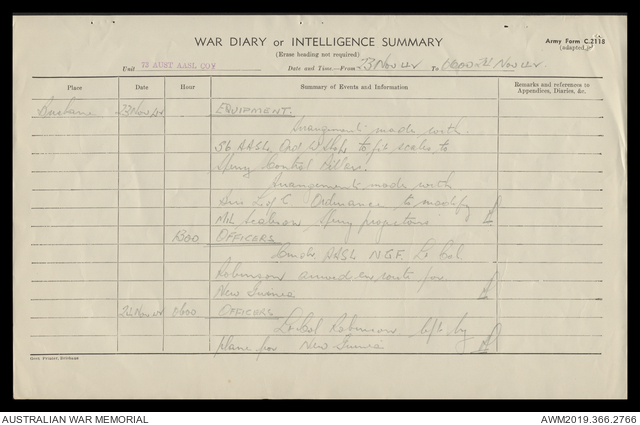 WAR DIARY or INTELLIGENCE SUMMARY
Army Form C.2118
(Erase heading not required)
(adapted)
Unit 72 AUST AASL COY Date and Time—From 23 Nov 44 To Nov 44
Place Date Hour Summary of Events and Information Remarks and references to Appendices, Diaries, &c.
Brisbane 23 Nov 44 EQUIPMENT.
Arrangements made with
56 AASL Ord W'shops to fit scales to
Sperry Control Pillars.
Arrangements made with
Ordnance to modify
Sperry projectors
1300 OFFICERS
Comdr AASL N.G.F. Lt Col
Robinson arrived en route for
New Guinea
24 Nov 44 0600 OFFICERS
Lt Col Robinson left by
plane for New Guinea
Govt Printer, Brisbane
AUSTRALIAN WAR MEMORIAL
AWM2019.366.2766